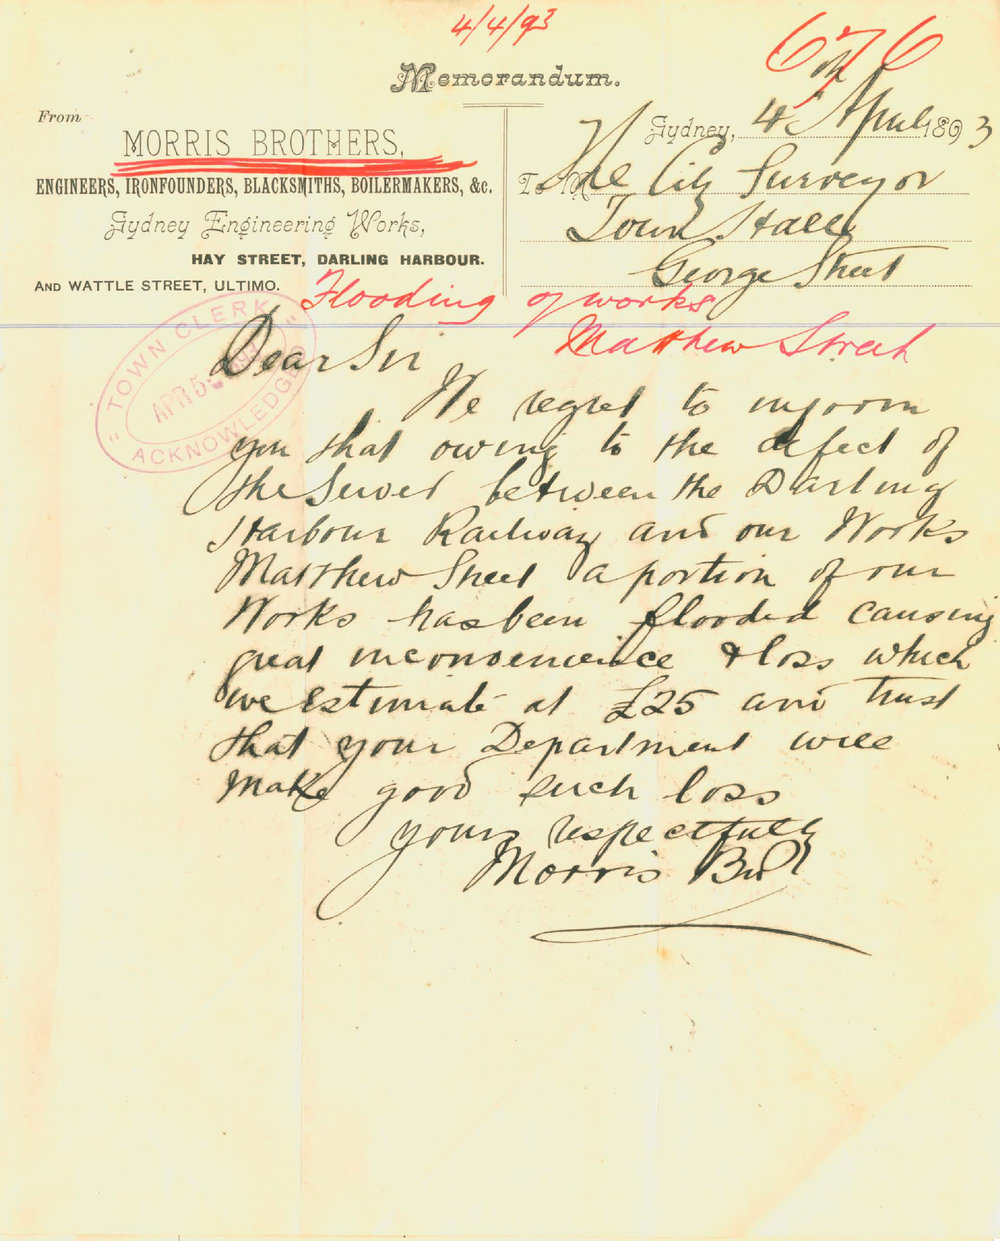 4/4/93
676
Memorandum.
From
MORRIS BROTHERS,
ENGINEERS, IRONFOUNDERS, BLACKSMITHS, BOILERMAKERS, &c.
Sydney Engineering Works,
HAY STREET, DARLING HARBOUR.
AND WATTLE STREET, ULTIMO.
Sydney, 4th April 1893
To M The City Surveyor
Town Hall
George Street
Flooding of works
Matthew Street
"TOWN CLERK"
APR 5
ACKNOWLEDGED
Dear Sir
We regret to inform
you that owing to the defect of
the Sewer between the Darling
Harbour Railway and our Works
Matthew Street a portion of our
Works has been flooded causing
great inconvenience & loss which
we estimate at £25 and trust
that your Department will
make good such loss
yours respectfully
Morris Bros